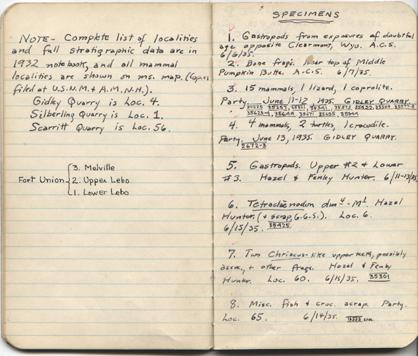 NOTE - Complete list of localities
and full stratigraphic data are in
1932 notebook, and all mammal
localities are shown on ms. map. (Copies
filed at U.S.N.M. & A.M.N.H.).
Gidley Quarry is Loc. 4.
Silberling Quarry is Loc. 1.
Scarritt Quarry is Loc. 56.
Fort Union
3. Melville
2. Upper Lebo
1. Lower Lebo
SPECIMENS
1. Gastropods from exposures of doubtful
age opposite Clearmont, Wyo. A.C.S.
6/6/35.
2. Bone frags. near top of Middle
Pumpkin Butte. A.C.S. 6/7/35.
3. 15 mammals, 1 lizard, 1 coprolite.
Party. June 11-12 1935. GIDLEY QUARRY.
4. 4 mammals, 2 turtles, 1 crocodile.
Party, June 13, 1935. GIDLEY QUARRY.
5. Gastropods. Upper #2 & Lower
#3. Hazel & Fenley Hunter. 6/11-13/35
6. Tetraclaenodon dm4 - M1 Hazel
Hunter. (+ scrap, G.G.S.). Loc. 6.
6/15/35.
7. Two Chriacus-like upper teeth, possibly
assoc., + other frags. Hazel & Fenley
Hunter. Loc. 60. 6/15/35.
8. Misc. fish & croc. scrap. Party.
Loc. 65. 6/14/35.